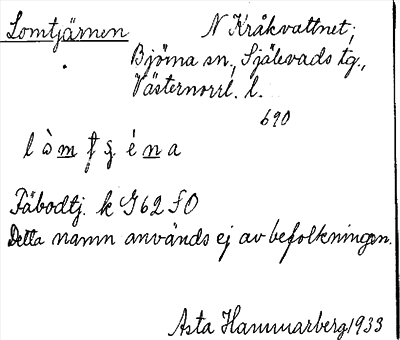 Lomtjärnen
N Kråkvattnet;
Björna sn., Själevads tg.,
Västernorrl. l.
690
l ò m t ʂ é n a
Fäbodtj. k G62 SO
Detta namn används ej av befolkningen.
Asta Hammarberg 1933